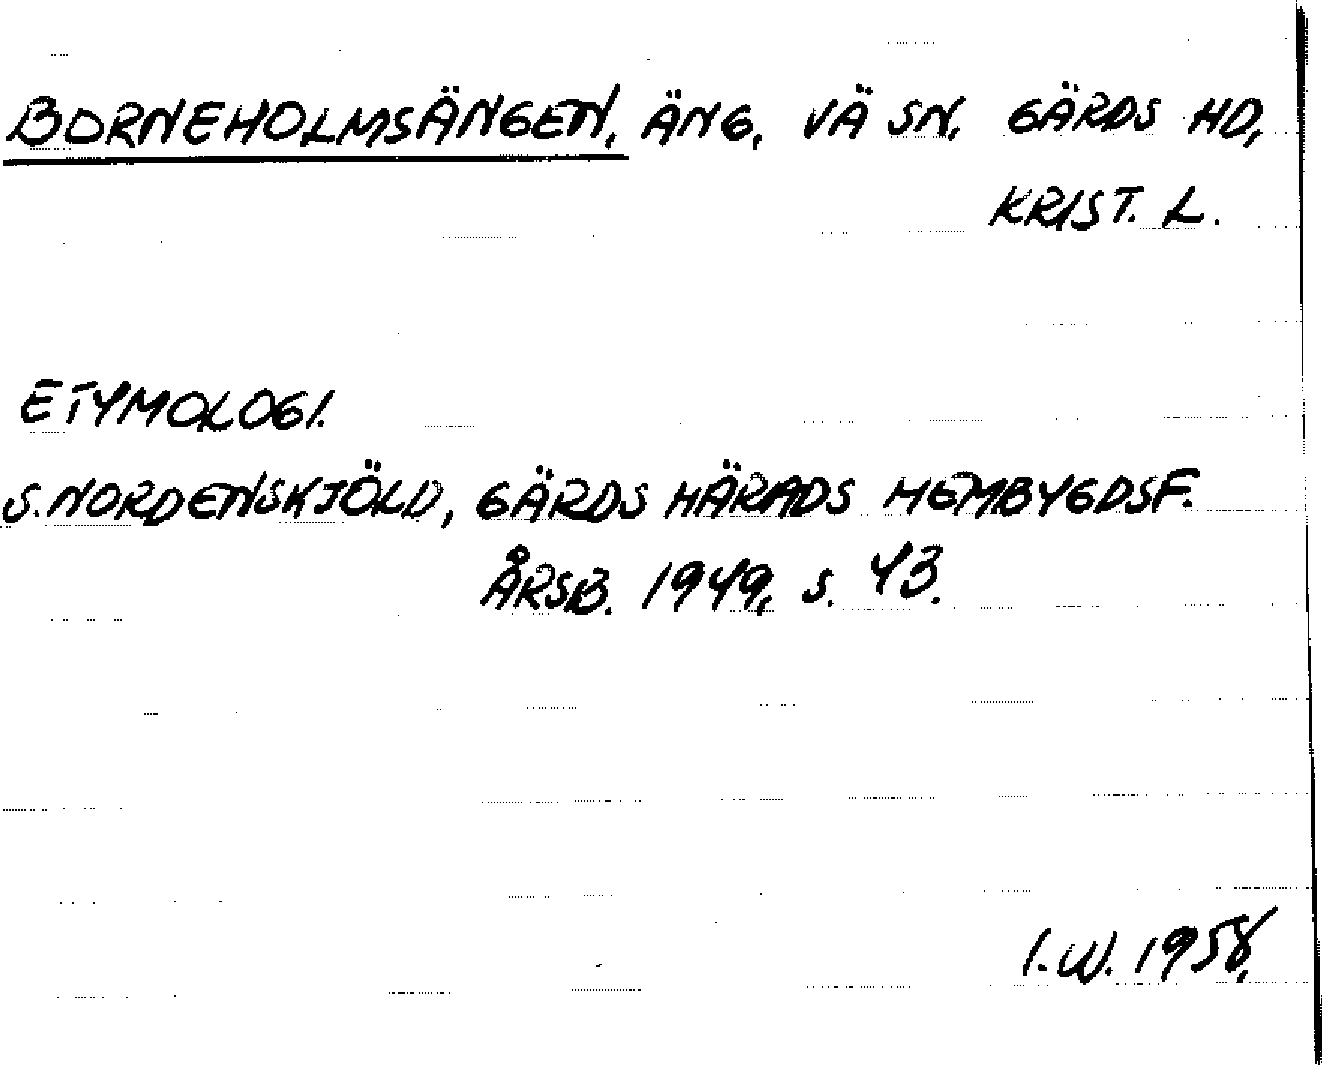 BORNEHOLMSÄNGEN, ÄNG, VÄ SN, GÄRDS HD,
KRIST. L.
ETYMOLOGI.
S. NORDENSKJÖLD, GÄRDS HÄRADS HEMBYGDSF.
ÅRSB. 1949, S. 43.
I.W. 1958,